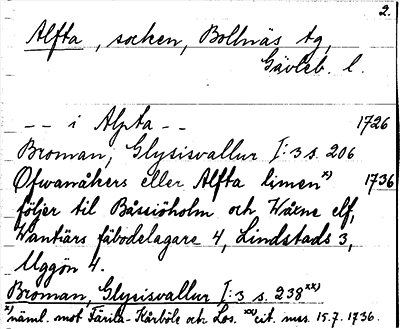 2.
Alfta, socken, Bollnäs tg,
Gävleb. l.
-- i Alpta -- 1726
Broman, Glysisvallur I:3 s. 206
Öfwanåkers eller Alfta limen x) 1736
följer til Båssiöholm och Wåxne elf,
Wantiärs fäbodelagare 4, Lindstads 3,
Uggön 4.
Broman, Glysisvallur I:3 s. 238 xx)
x) näml. mot Färila-Kårböle och Los. xx) cit. mss. 15.7.1736.